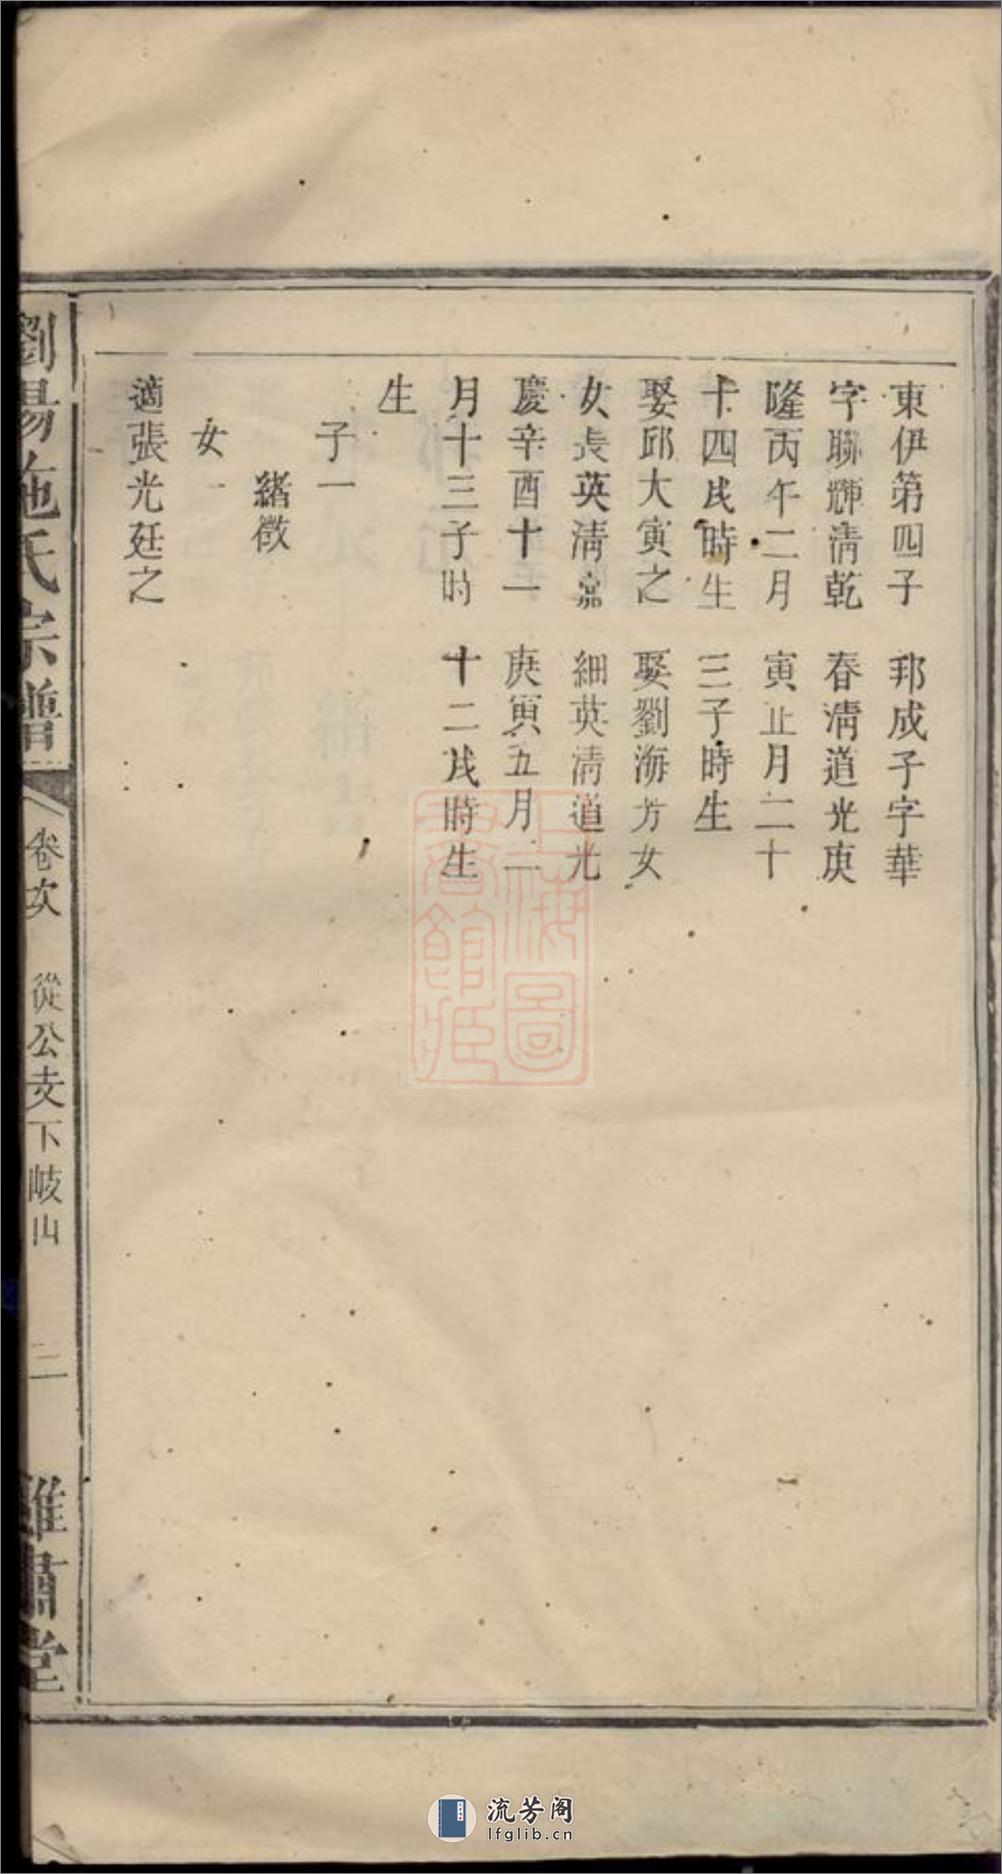 東伊第四子
字聯輝清乾
隆丙午二月
十四戌時生
娶邱大寅之
女長英清嘉
慶辛酉十一
月十三子時
生
子一
緒徵
女一
適張光廷之
邦成子字華
春清道光庚
寅正月二十
三子時生
娶劉海方女
細英清道光
庚寅五月二
十二戌時生
劉陽施氏宗譜
卷次
從公支下岐山
二
雍肅堂
上海圖書館
流芳阁
lfglib.cn